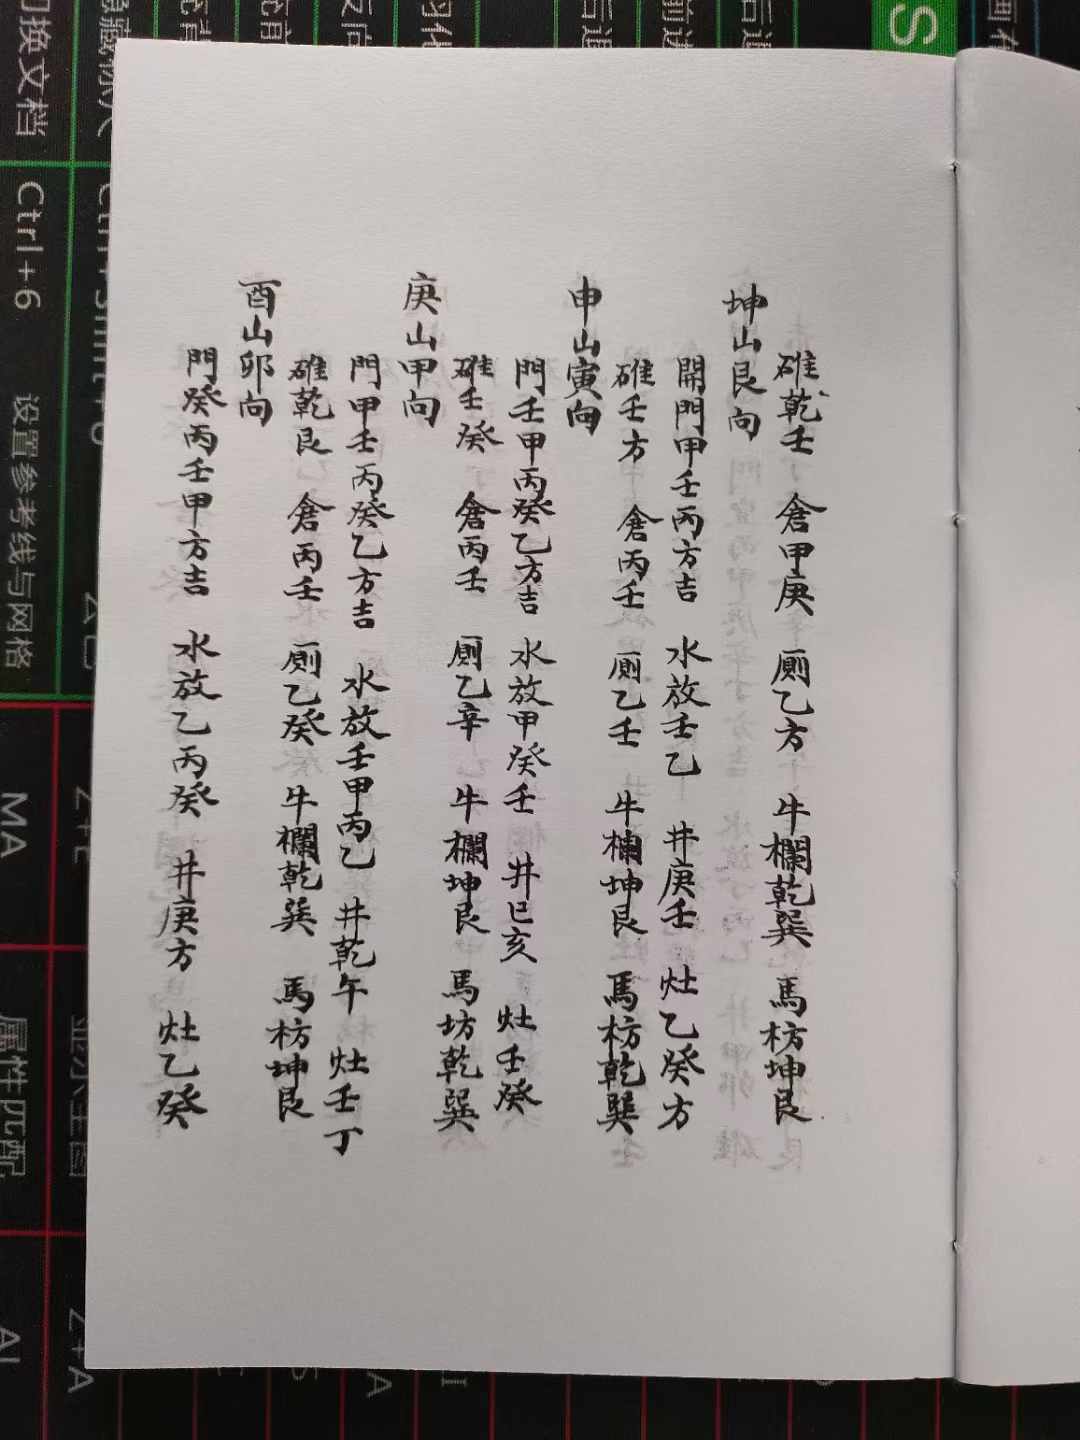 碓乾壬　倉甲庚　厠乙方　牛欄乾巽　馬枋坤艮
坤山艮向
開門甲壬丙方吉　水放壬乙　井庚壬　灶乙癸方
碓壬方　倉丙壬　厠乙壬　牛欄坤艮　馬枋乾巽
申山寅向
門壬甲丙癸乙方吉　水放甲癸壬　井巳亥　灶壬癸
碓壬癸　倉丙壬　厠乙辛　牛欄坤艮　馬坊乾巽
庚山甲向
門甲壬丙癸乙方吉　水放壬甲丙乙　井乾午　灶壬丁
碓乾艮　倉丙壬　厠乙癸　牛欄乾巽　馬枋坤艮
酉山卯向
門癸丙壬甲方吉　水放乙丙癸　井庚方　灶乙癸
切换文档
Ctrl+6
设置参考线与网格
MA
属性匹配
AI
Z+A
S